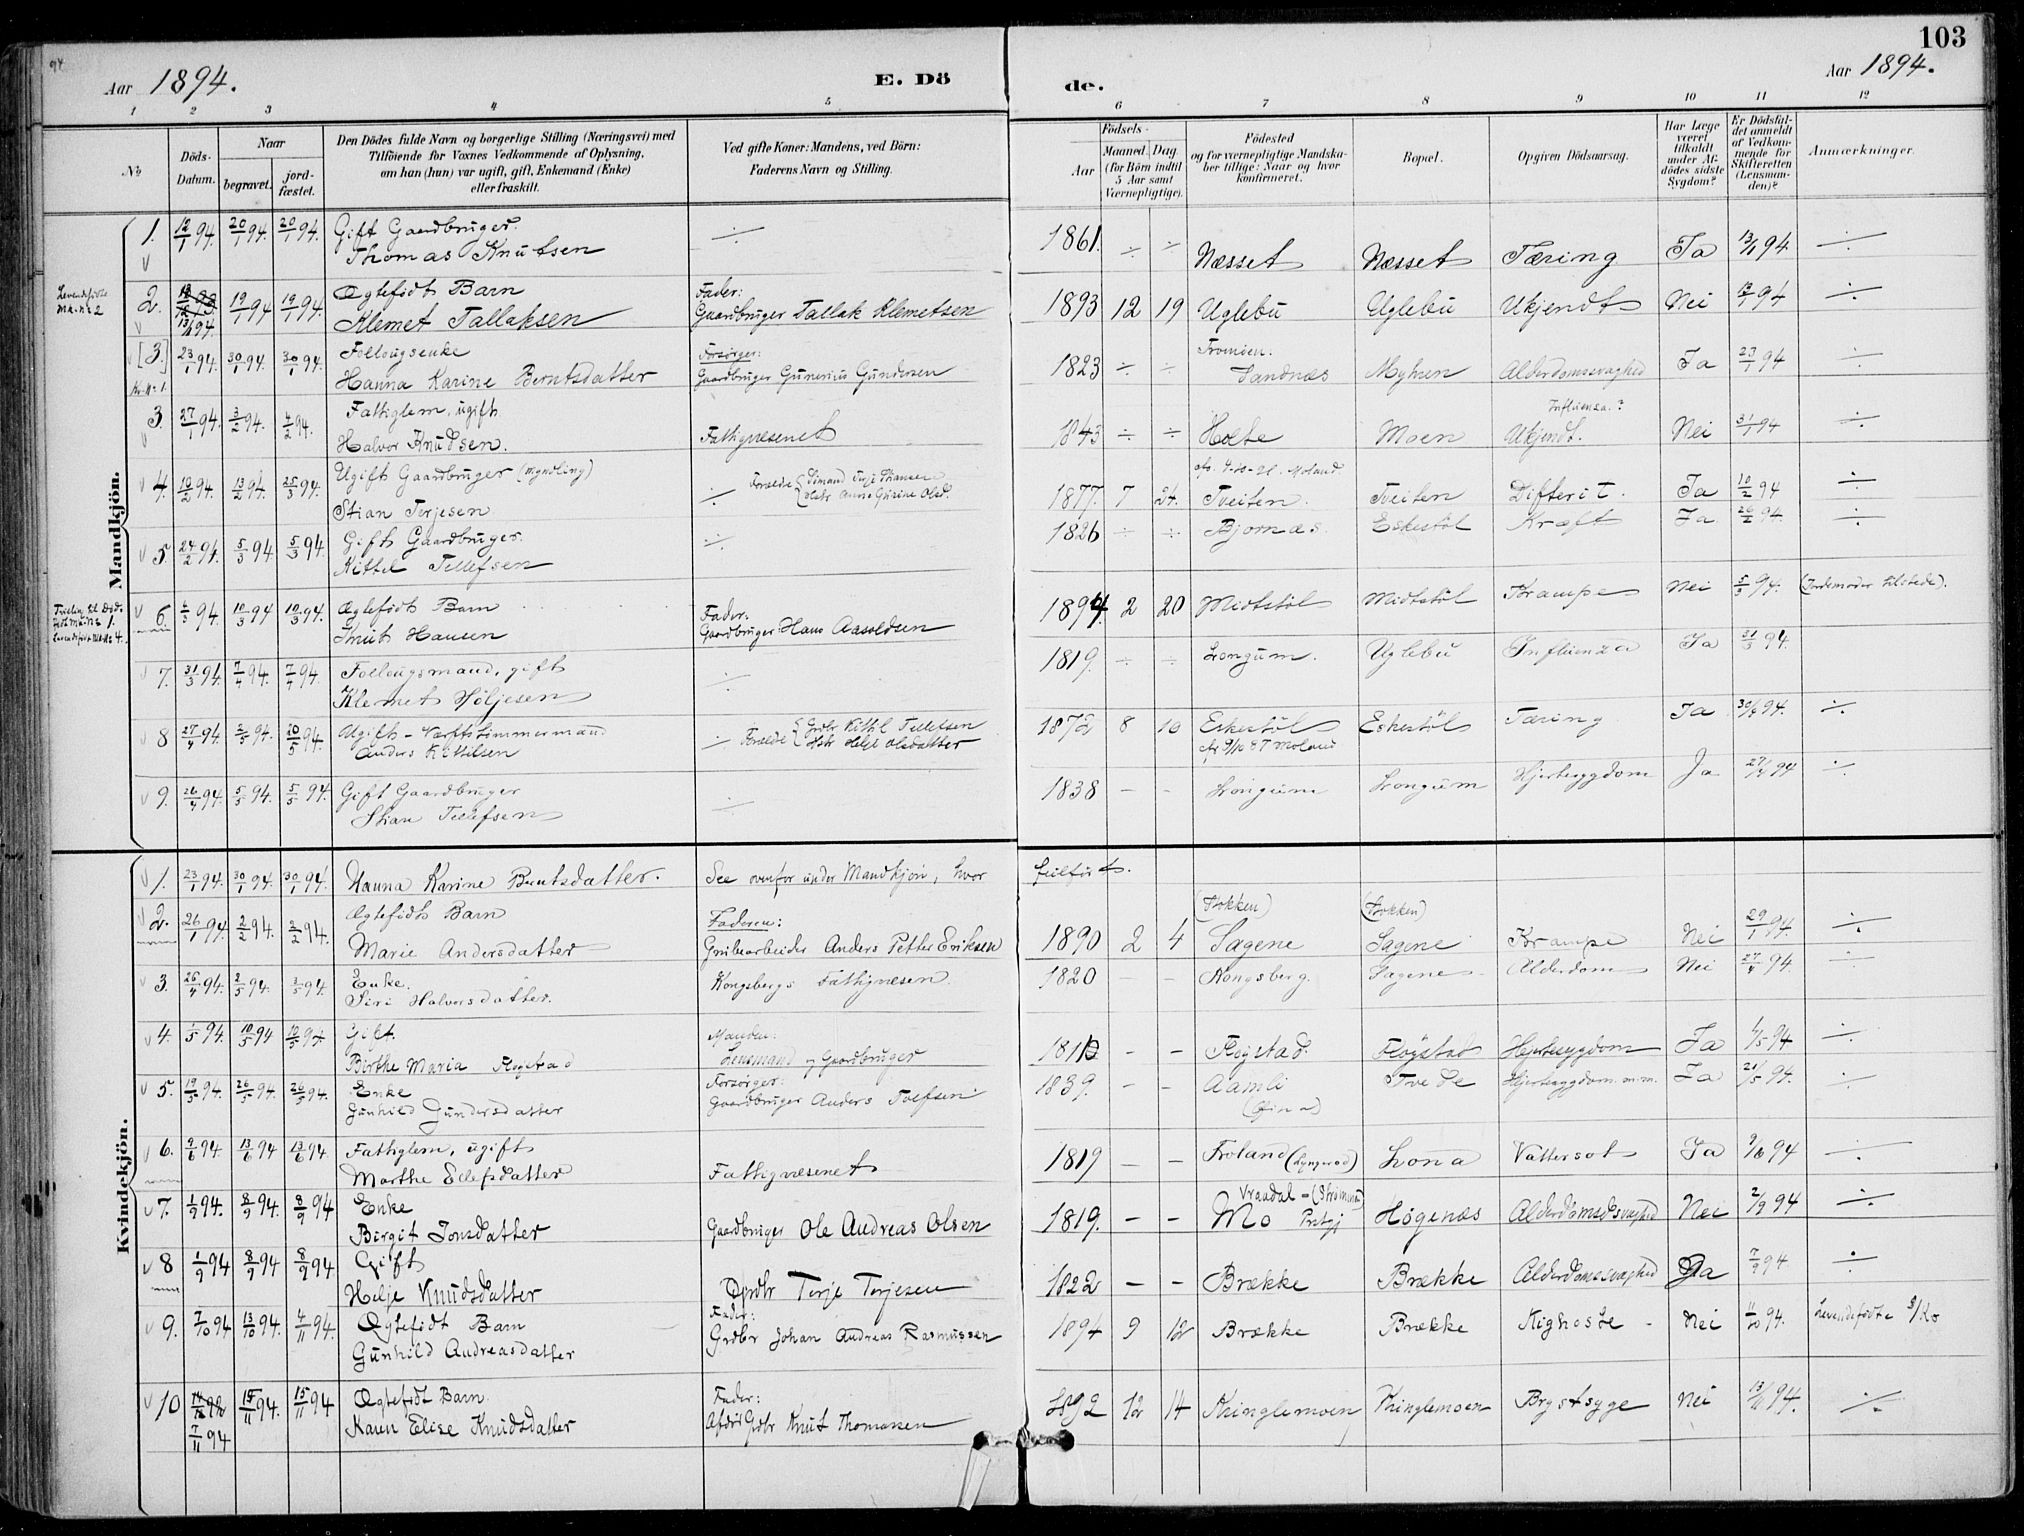 94
103
Aar 1894.
E. Dö
de.
Aar 1894.
1 2 3 4 5 6 7 8 9 10 11 12
No
Döds-Datum.
Naar
begravet.
jord-fæstet.
Den Dödes fulde Navn og borgerlige Stilling (Næringsvei) med
Tilföiende for Voxnes Vedkommende af Oplysning,
om han (hun) var ugift, gift, Enkemand (Enke)
eller fraskilt.
Ved gifte Koner: Mandens, ved Börn:
Faderens Navn og Stilling.
Födsels-
Aar
Maaned. Dag.
(for Börn indtil
5 Aar samt
Værnepligtige).
Födested
og for værnepligtige Mandska-
ber tillige: Naar og hvor
konfirmeret.
Bopæl.
Opgiven Dödsaarsag.
Har Læge
været
tilkaldt
under Af-
dödes sidste
Sygdom?
Er Dödsfal-
det anmeldt
af Vedkom-
mende for
Skifteretten
(Lensman-
den)?
Anmærkninger.
Mandkjön.
1. 12/1 94. 20/1 94. 20/1 94. Gift Gaardbruger. ÷ 1861. ÷ ÷ Næsset Næsset Tæring Ja 13/1 94 ÷
Thomas Knutsen
Levendefødte
Mk. No 2
2. 13/1 94. 19/1 94 19/1 94. Ægtefødt Barn Fader: 1893 12 19 Uglebu Uglebu Ukjendt Nei 13/1 94 ÷
Klemet Tallaksen Gaardbruger Tallak Klemetsen
[3.] 23/1 94. 30/1 94. 30/1 94. Follougsenke Forsørger: 1823 ÷ ÷ Tromøen: Sandnæs Myhren Alderdomssvaghed Ja 23/1 94 ÷
Hanna Karine Berntsdatter Gaardbruger Gunerius Gundersen
3. 27/1 94. 3/2 94. 4/2 94. Fattiglem, ugift 1843 ÷ ÷ Holte Moen Influensa? Ukjendt. Nei 31/1 94 ÷
Halvor Knudsen. Fattigvæsenet
4. 10/2 94. 13/2 94. 25/3 94. Ugift Gaardbruger (myndling) ÷ Forældre 1877. 7 24. Tveiten. Tveiten Difterit. Ja 10/2 94 ÷
Stian Terjesen
5. 24/2 94. 5/3 94 5/3 94. Gift Gaardbruger. ÷ 1826 ÷ ÷ Bjornæs. Eskestöl Kræft Ja 26/2 94. ÷
Kittel Tellefsen
6. 94 10/3 94 10/3 94. Ægtefødt Barn Fader: 1894. 2 20 Midtstöl Midtstöl Krampe Nei 5/3 94. (Jordemoder tilstede).
Knut Hansen Gaardbruger Hans Aasoldsen
7. 31/3 94. 7/4 94. 7/4 94. Follougsmand, gift ÷ 1819. ÷ ÷ Longum. Uglebu Influenza Ja 31/3 94.
Klemet Höljesen
8 27/4 94. 2/5 94. 20/5 94. Ugift - Værftstimmermand ÷ Forældre Grdbr Kittil Tellefsen 1872 8 10 Eskestöl Eskestöl Tæring Ja 30/4 94. ÷
Anders Kittilsen Hstr Helje Olsdatter Moland
9. 26/4 94. 5/5 94. 5/5 94. Gift Gaardbruger ÷ 1838 – – Longum Longum Hjertesygdom Ja 27/4 94 ÷
Stian Tellefsen
Kvindekjön.
1. 23/1 94. 30/1 94. 30/1 94. Hanna Karine Berntsdatter. See ovenfor under Mandkjön, hvor tilført.
2. 26/1 94. 2/2 94. 2/2 94. Ægtefødt Barn Faderen: 1890 2 4 (Stokken) Sagene (Stokken) Sagene Krampe Nei 29/1 94. ÷
Marie Andersdatter Grubearbeider Anders Petter Eriksen
3. 26/4 94. 2/5 94. 3/5 94. Enke. Kongsbergs Fattigvæsen. 1820 – – Kongsberg. Sagene Alderdom Nei 27/4 94. ÷
Siri Halvorsdatter.
4. 1/5 94. 10/5 94 10/5 94 Gift. Manden: – – Fløystad. Fløystad Hjertesygdom Ja 1/5 94 ÷
Birthe Maria Fløystad Lensmand og Gaardbruger
5. 19/5 94. 26/5 94. 26/5 94. Enke Forsørger: 1839. – – Aamli Tvede Hjertesygdom m.m. Ja 21/5 94. ÷
Gunhild Gundersdatter Gaardbruger Anders Tolfsen
6. 9/6 94 13/6 94 13/6 94 Fattiglem, ugift 1819 – – Froland Lona Vattersot Ja 9/6 94 ÷
Marthe Ellefsdatter Fattigvæsenet
7. 1/9 94. 8/9 94. 8/9 94 Enke 1819. – – Vraadal Mo Prstgj Høgenæs Alderdomssvaghed Nei 2/9 94 ÷
Birgit Jonsdatter Gaardbruger Ole Andreas Olsen
8 1/9 94 8/9 94 8/9 94 Gift 1822 – – Brække Brække Alderdomssvaghed Ja 7/9 94 ÷
Helje Knudsdatter Terje Terjesen
9. 7/10 94 13/10 94. 4/11 94. Ægtefødt Barn Fader: 1894 9 12 Brække Brække Kighoste - Nei 11/10 94. Levendefødte
Gunhild Andreasdatter Grdbr Johan Andreas Rasmussen
10 7/11 94 15/11 94. 15/11 94 Ægtefødt Barn. Fader: 1892 12 14 Kringlemoen Kringlemoen Brystsyge Nei 13/11 94. ÷
Karen Elise Knudsdatter Grdbr Knut Thomassen